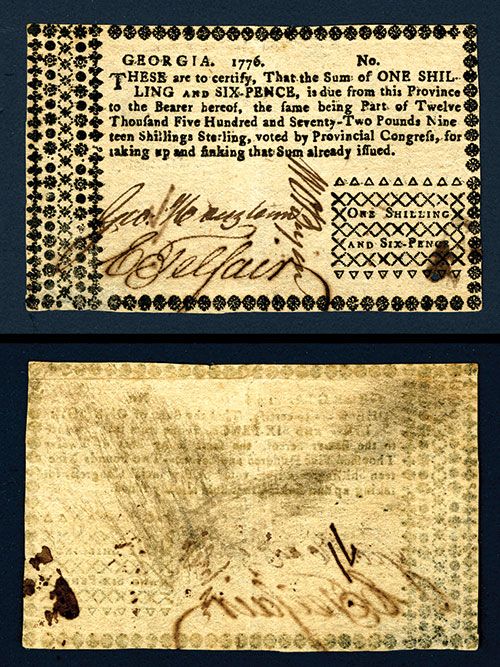 GEORGIA. 1776. No.
THESE are to certify, That the Sum of ONE SHIL-
LING AND SIX-PENCE, is due from this Province
to the Bearer hereof, the same being Part of Twelve
Thousand Five Hundred and Seventy-Two Pounds Nine
teen Shillings Sterling, voted by Provincial Congress, for
taking up and sinking that Sum already issued.
E Telfair
ONE SHILLING
AND SIX-PENCE